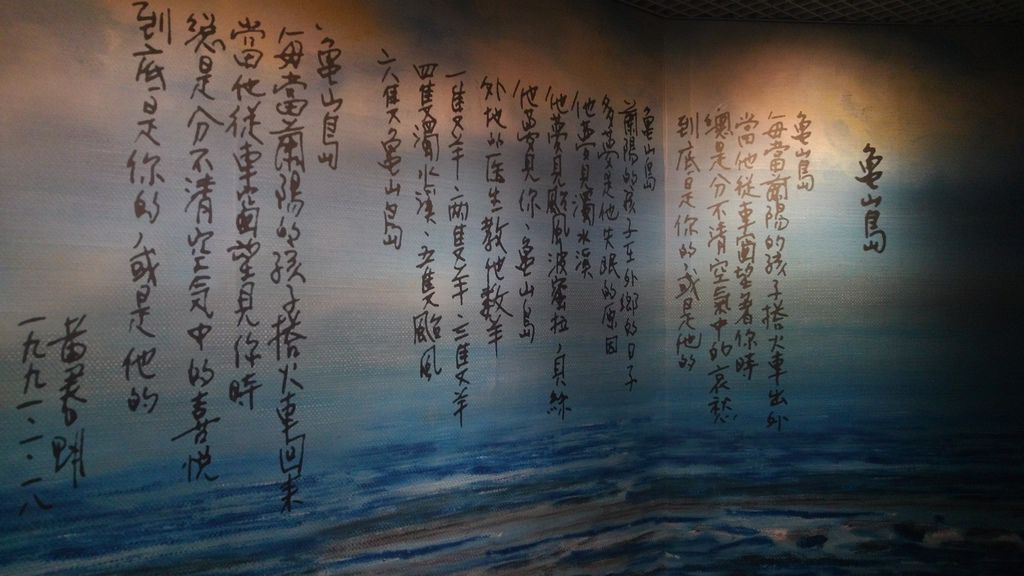 龜山島
龜山島
每當蘭陽的孩子搭火車出外
當他從車窗望著你時
總是分不清空氣中的哀愁
到底是你的或是他的
龜山島
蘭陽的孩子在外鄉的日子
多夢是他失眠的原因
他夢見濁水溪
他夢見颱風波蜜拉、貝絲
他夢見你、龜山島
外地的医生教他數羊
一隻羊、兩隻羊、三隻羊
四隻濁水溪、五隻颱風
六隻龜山島
龜山島
每當蘭陽的孩子搭火車回來
當他從車窗望見你時
總是分不清空氣中的喜悅
到底是你的或是他的
黃春明
一九九一.一.一八